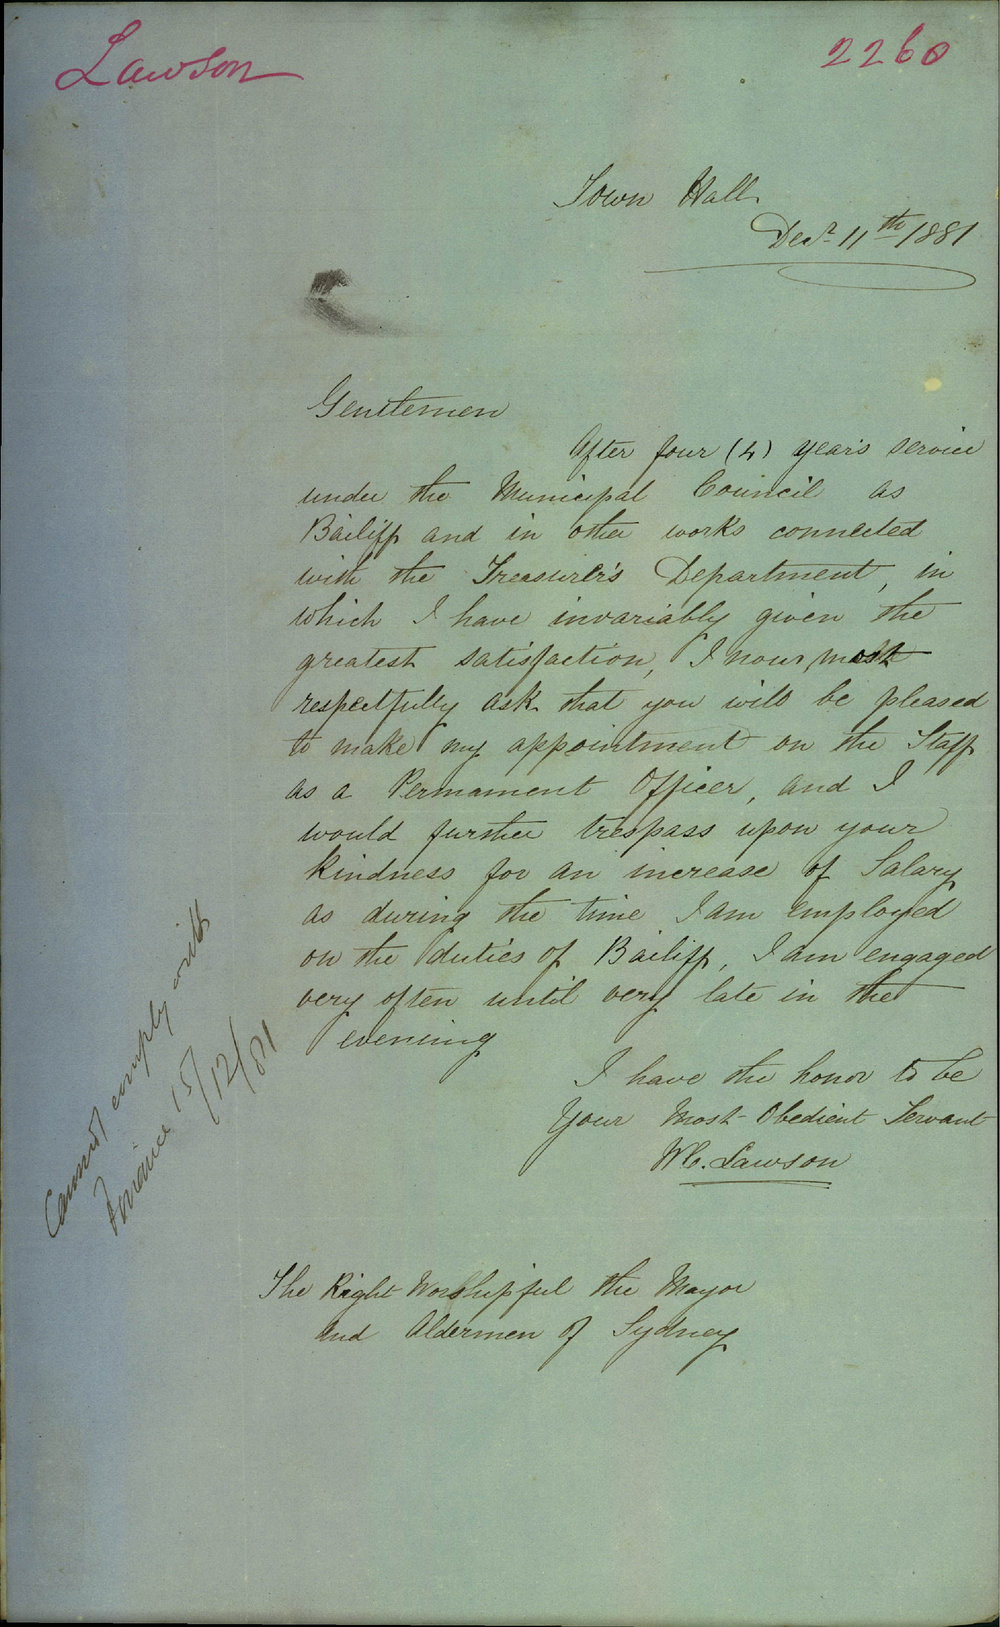 Lawson
2260
Town Hall
Decr 11th 1881
Gentlemen
After four (4) years service
under the Municipal Council as
Bailiff and in other works connected
with the Treasurer's Department, in
which I have invariably given the
greatest satisfaction, I now most
respectfully ask that you will be pleased
to make my appointment on the Staff
as a Permament Officer, and I
would further trespass upon your
kindness for an increase of Salary
as during the time I am employed
on the duties of Bailiff, I am engaged
very often until very late in the
evening
I have the honor to be
Your Most Obedient Servant
W C. Lawson
Cannot comply with
Finance 15/12/81
The Right Worshipful the Mayor
and Aldermen of Sydney